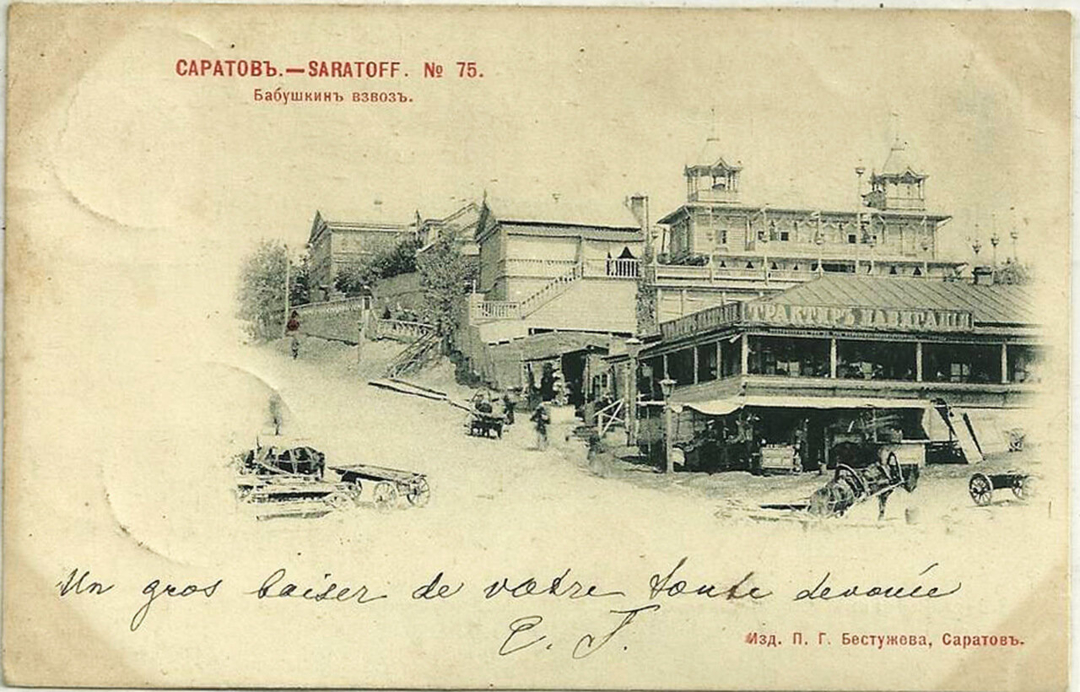 САРАТОВЪ.—SARATOFF. № 75.
Бабушкинъ взвозъ.
ТРАКТИРЪ
Un gros baiser de votre toute dévouée
E. T.
Изд. П. Г. Бестужева, Саратовъ.